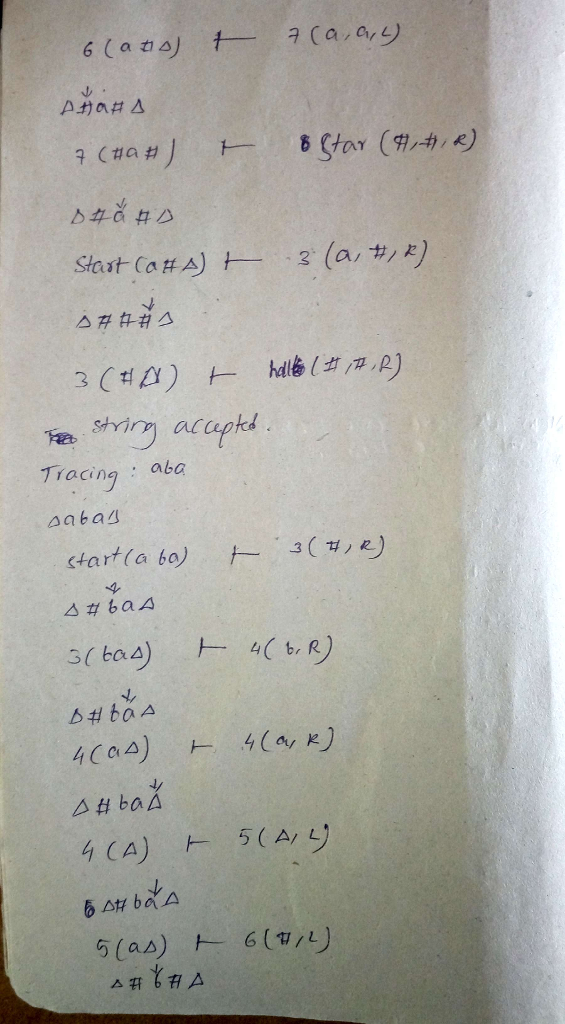 6 (a # Δ) ⊢ 7 (a, a, L)
↓
Δ # a # Δ
7 (# a #) ⊢ Star (#, #, R)
↓
Δ # a # Δ
Start (a # Δ) ⊢ 3 (a, #, R)
↓
Δ # # # Δ
3 (# Δ) ⊢ halt (#, #, R)
string accepted.
Tracing : aba
Δ a b a Δ
start (a b a) ⊢ 3 (#, R)
↓
Δ # b a Δ
3 (b a Δ) ⊢ 4 (b, R)
↓
Δ # b a Δ
4 (a Δ) ⊢ 4 (a, R)
↓
Δ # b a Δ
4 (Δ) ⊢ 5 (Δ, L)
↓
Δ # b a Δ
5 (a Δ) ⊢ 6 (#, L)
↓
Δ # b # Δ